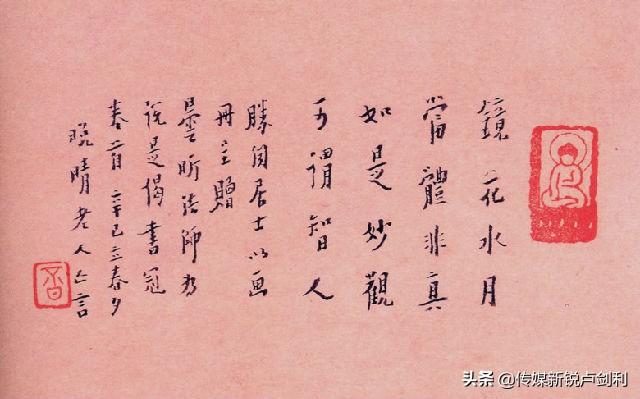 鏡花水月
當體非真
如是妙觀
可謂智人
勝居士以画
冊贈
曇昕法師為
說是偈書冠
卷首 辛巳立春夕
晚晴老人亡言
头条 @传媒新锐卢剑利